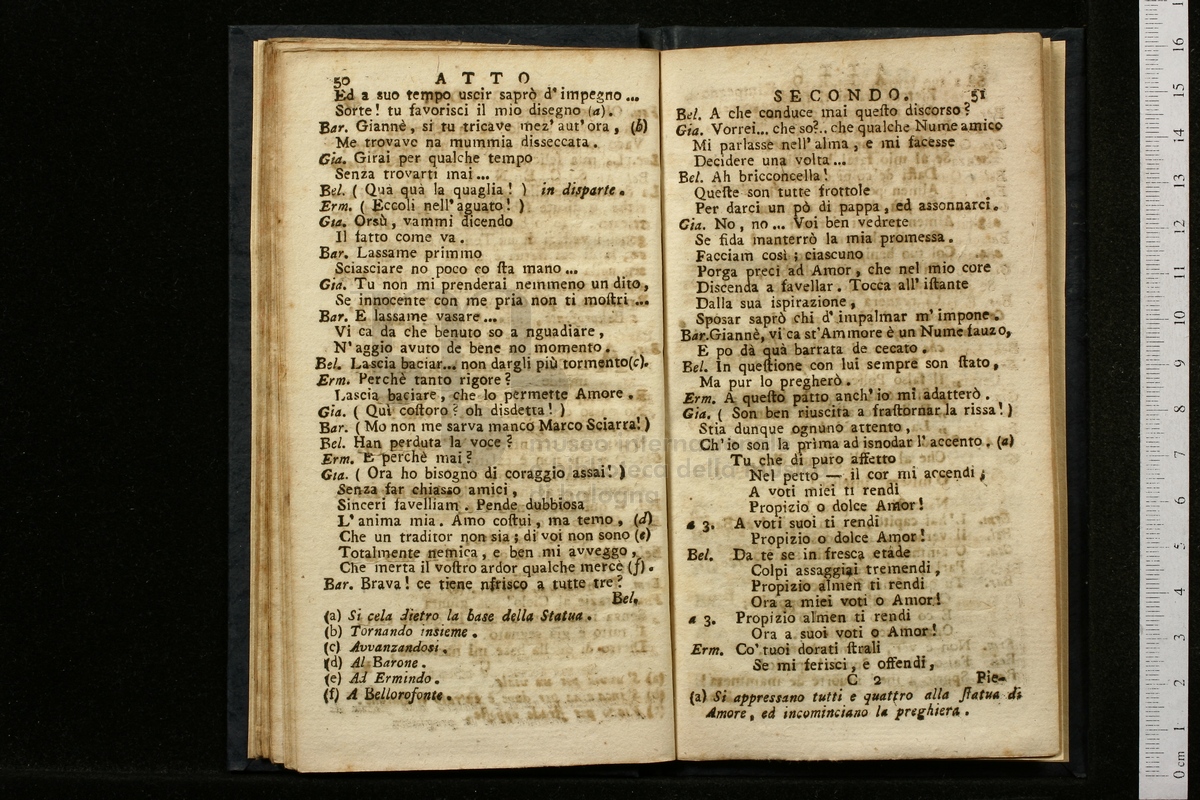 50 ATTO
Ed a suo tempo uscir saprò d'impegno ...
Sorte! tu favorisci il mio disegno (a).
Bar. Giannè, si tu tricave mez' aut' ora, (b)
Me trovave na mummia disseccata.
Gia. Girai per qualche tempo
Senza trovarti mai ...
Bel. ( Quà quà la quaglia! ) in disparte.
Erm. ( Eccoli nell'aguato! )
Gia. Orsù, vammi dicendo
Il fatto come va.
Bar. Lassame primmo
Sciasciare no poco co sta mano ...
Gia. Tu non mi prenderai nemmeno un dito,
Se innocente con me pria non ti mostri ...
Bar. E lassame vasare ...
Vi ca da che benuto so a nguadiare,
N'aggio avuto de bene no momento.
Bel. Lascia baciar... non dargli più tormento(c).
Erm. Perchè tanto rigore?
Lascia baciare, che lo permette Amore.
Gia. ( Quì costoro? oh disdetta! )
Bar. ( Mo non me sarva manco Marco Sciarra! )
Bel. Han perduta la voce?
Erm. E perchè mai?
Gia. ( Ora ho bisogno di coraggio assai! )
Senza far chiasso amici,
Sinceri favelliam. Pende dubbiosa
L'anima mia. Amo costui, ma temo, (d)
Che un traditor non sia; di voi non sono (e)
Totalmente nemica, e ben mi avveggo,
Che merta il vostro ardor qualche mercè (f).
Bar. Brava! ce tiene nfrisco a tutte tre?
Bel.
(a) Si cela dietro la base della Statua.
(b) Tornando insieme.
(c) Avvanzandosi.
(d) Al Barone.
(e) Ad Ermindo.
(f) A Bellorofonte.
SECONDO. 51
Bel. A che conduce mai questo discorso?
Gia. Vorrei... che so?.. che qualche Nume amico
Mi parlasse nell'alma, e mi facesse
Decidere una volta ...
Bel. Ah bricconcella!
Queste son tutte frottole
Per darci un pò di pappa, ed assonnarci.
Gia. No, no ... Voi ben vedrete
Se fida manterrò la mia promessa.
Facciam così; ciascuno
Porga preci ad Amor, che nel mio core
Discenda a favellar. Tocca all'istante
Dalla sua ispirazione,
Sposar saprò chi d'impalmar m'impone.
Bar. Giannè, vi ca st'Ammore è un Nume fauzo,
E po dà quà barrata de cecato.
Bel. In questione con lui sempre son stato,
Ma pur lo pregherò.
Erm. A questo patto anch'io mi adatterò.
Gia. ( Son ben riuscita a frastornar la rissa! )
Stia dunque ognuno attento,
Ch'io son la prima ad isnodar l'accento. (a)
Tu che di puro affetto
Nel petto — il cor mi accendi;
A voti miei ti rendi
Propizio o dolce Amor!
a 3. A voti suoi ti rendi
Propizio o dolce Amor!
Bel. Da te se in fresca etade
Colpi assaggiai tremendi,
Propizio almen ti rendi
Ora a miei voti o Amor!
a 3. Propizio almen ti rendi
Ora a suoi voti o Amor!
Erm. Co' tuoi dorati strali
Se mi ferisci, e offendi,
C 2 Pie-
(a) Si appressano tutti e quattro alla statua di
Amore, ed incominciano la preghiera.
0 cm 1 2 3 4 5 6 7 8 9 10 11 12 13 14 15 16